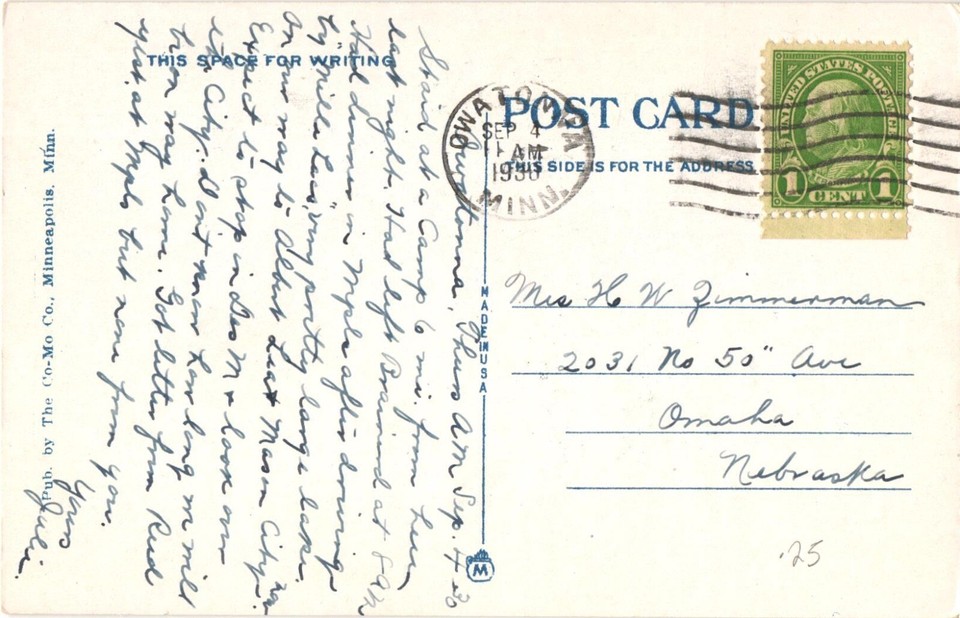 THIS SPACE FOR WRITING
POST CARD
THIS SIDE IS FOR THE ADDRESS
OWATONNA
SEP 4
11 AM
1930
MINN.
UNITED STATES POSTAGE
1 1
CENT
Owatonna, Thurs A.M Sep. 4-30
Staid at a Camp 6 mi. from here
last night. Had left Brainerd at 8 A.M
Had dinner in Mpls after driving
by "Mille Lacs", very pretty large lake.
On our way to Albert Lea & Mason City Ia.
Expect to stop in Des M & look over
the City. Don't know how long we will
tron way home. Got letter from Rud
yist. at Mpls but none from you.
Yours
Juli.
Mrs H W Zimmerman
2031 No 50" Ave
Omaha
Nebraska
MADE IN USA
M
Pub. by The Co-Mo Co., Minneapolis, Minn.
.25